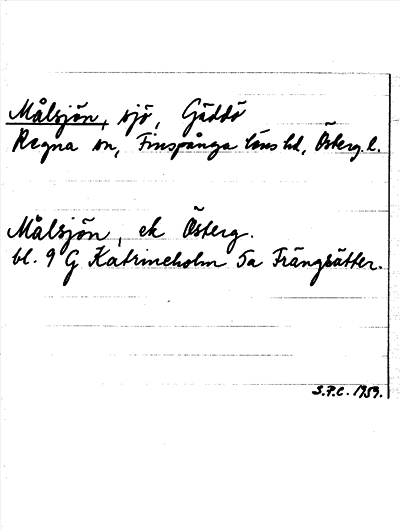 Målsjön, sjö, Gäddö
Regna sn, Finspånga läns hd, Österg. l.
Målsjön, ek Österg.
bl. 9 G Katrineholm 5a Frängsätter.
S.P.C. 1959.